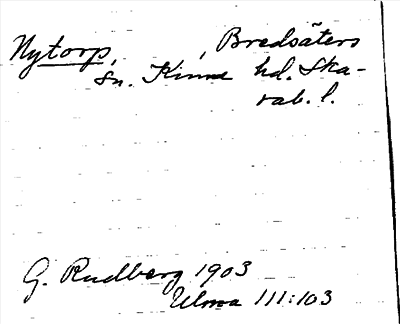 Nytorp, , Bredsäters
sn. Kinne hd. Ska-
rab. l.
G. Rudberg 1903
Ulma 111:103